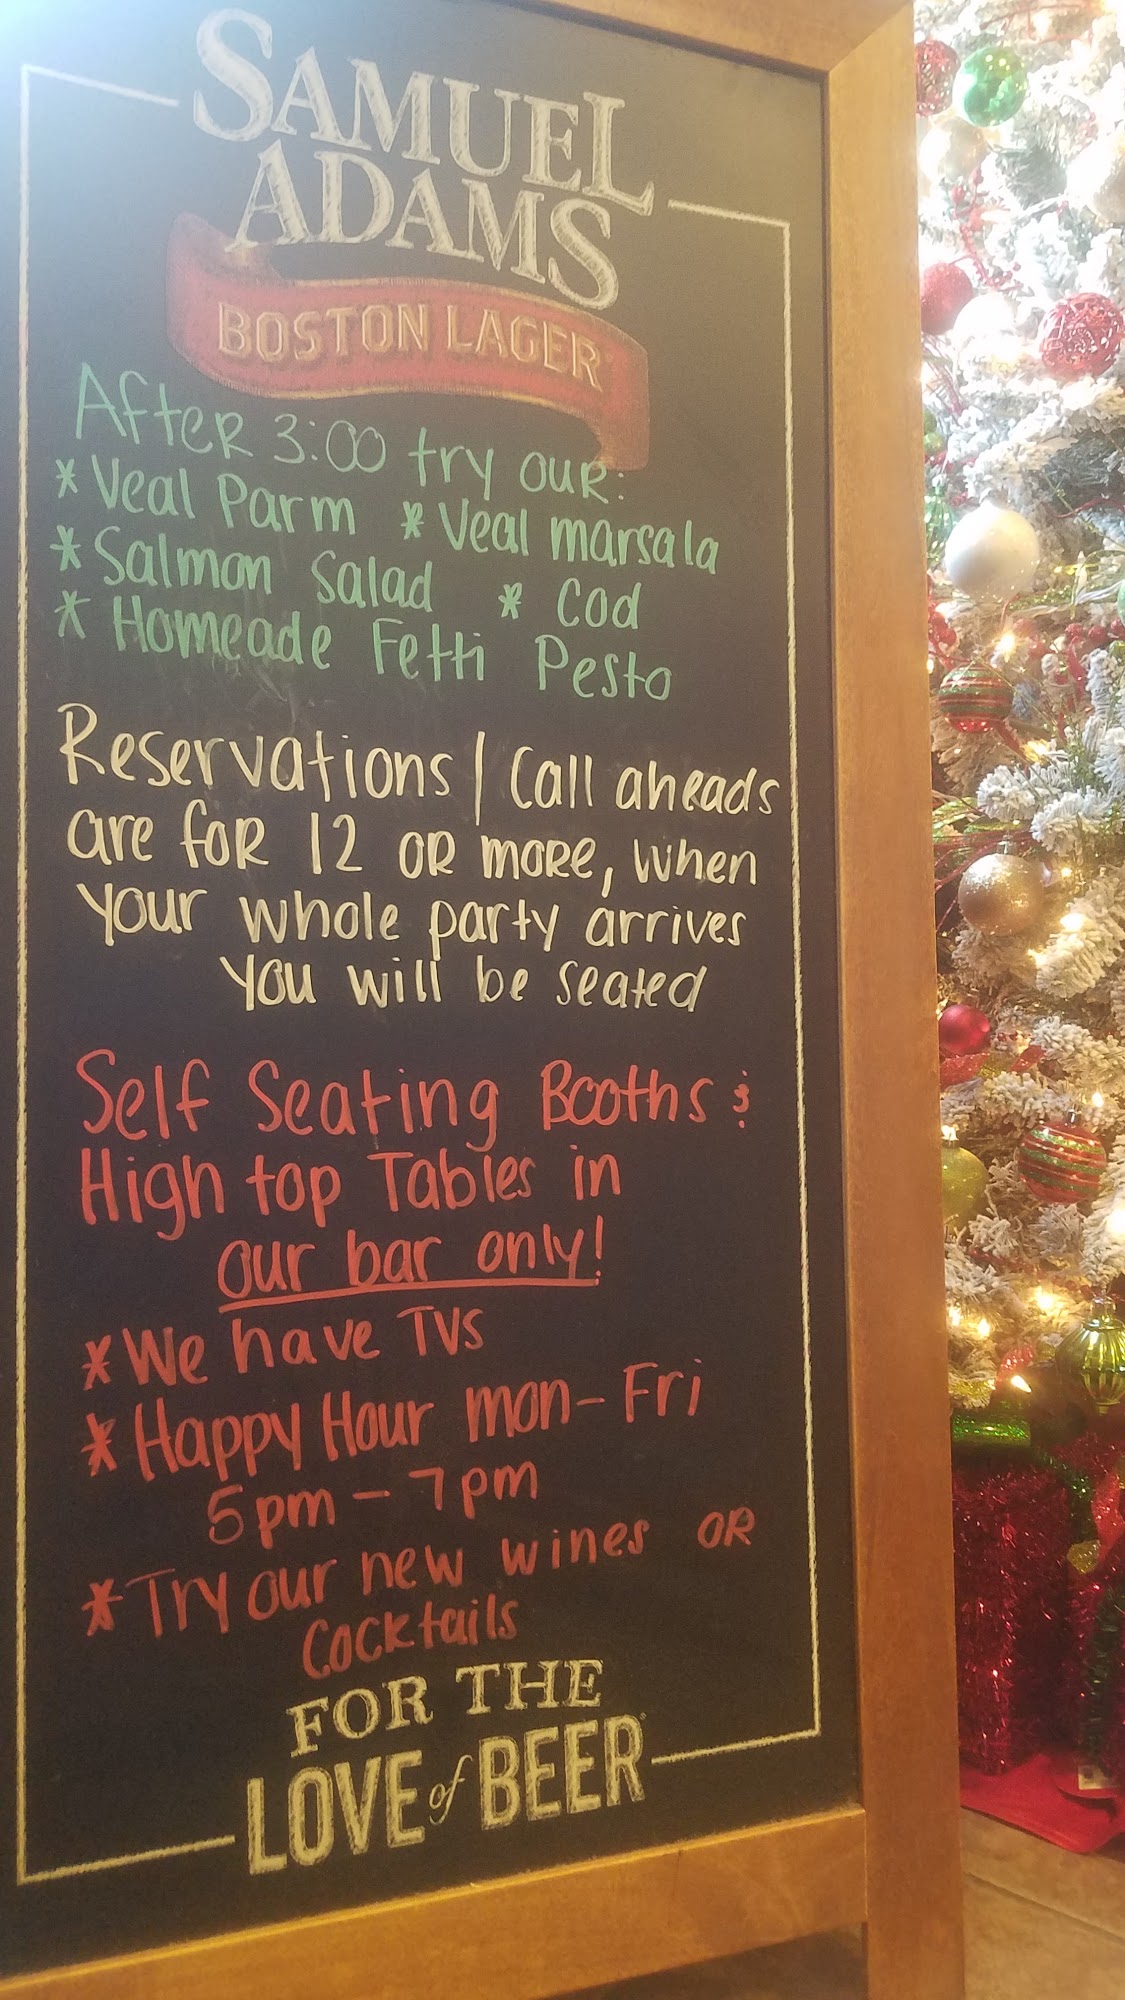 SAMUEL
ADAMS
BOSTON LAGER
After 3:00 try our:
* Veal Parm * Veal marsala
* Salmon Salad * Cod
* Homeade Fetti Pesto
Reservations / Call aheads
are for 12 or more, when
your whole party arrives
you will be seated
Self Seating Booths &
High top Tables in
our bar only!
* We have TVs
* Happy Hour mon - Fri
5pm - 7pm
* Try our new wines or
Cocktails
FOR THE
LOVE of BEER